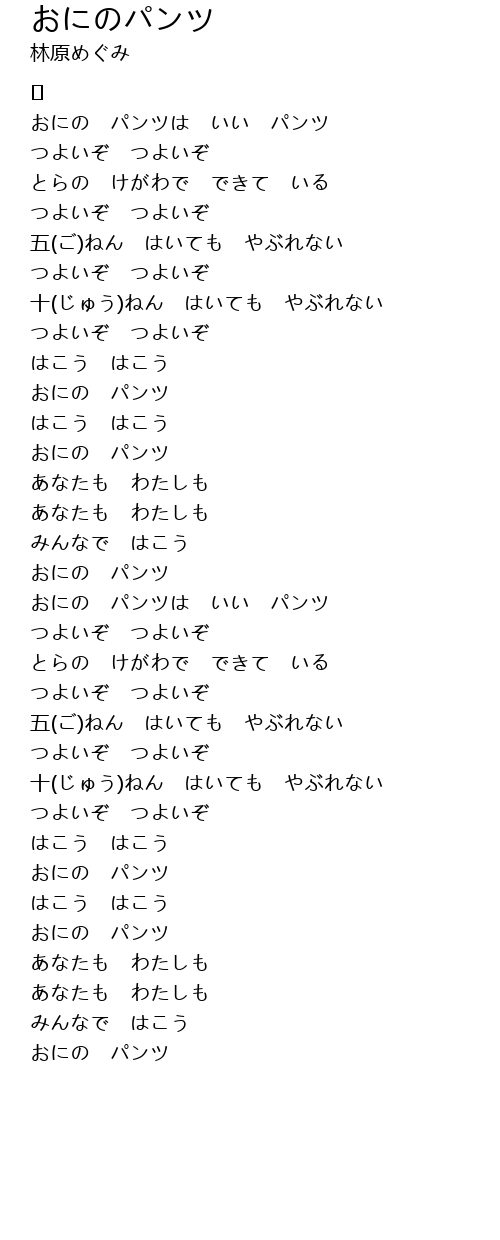 おにのパンツ
林原めぐみ
[]
おにの　パンツは　いい　パンツ
つよいぞ　つよいぞ
とらの　けがわで　できて　いる
つよいぞ　つよいぞ
五(ご)ねん　はいても　やぶれない
つよいぞ　つよいぞ
十(じゅう)ねん　はいても　やぶれない
つよいぞ　つよいぞ
はこう　はこう
おにの　パンツ
はこう　はこう
おにの　パンツ
あなたも　わたしも
あなたも　わたしも
みんなで　はこう
おにの　パンツ
おにの　パンツは　いい　パンツ
つよいぞ　つよいぞ
とらの　けがわで　できて　いる
つよいぞ　つよいぞ
五(ご)ねん　はいても　やぶれない
つよいぞ　つよいぞ
十(じゅう)ねん　はいても　やぶれない
つよいぞ　つよいぞ
はこう　はこう
おにの　パンツ
はこう　はこう
おにの　パンツ
あなたも　わたしも
あなたも　わたしも
みんなで　はこう
おにの　パンツ